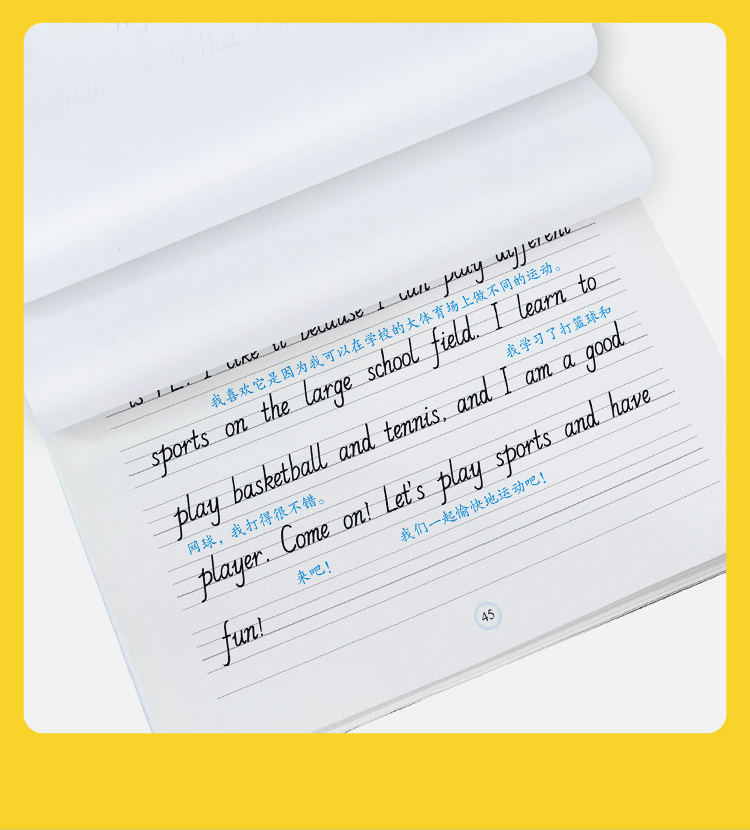 I like it because I can play different
我喜欢它是因为我可以在学校的大体育场上做不同的运动。
sports on the large school field. I learn to
我学习了打篮球和
play basketball and tennis, and I am a good
网球，我打得很不错。
player. Come on! Let's play sports and have
来吧！ 我们一起愉快地运动吧！
fun!
45